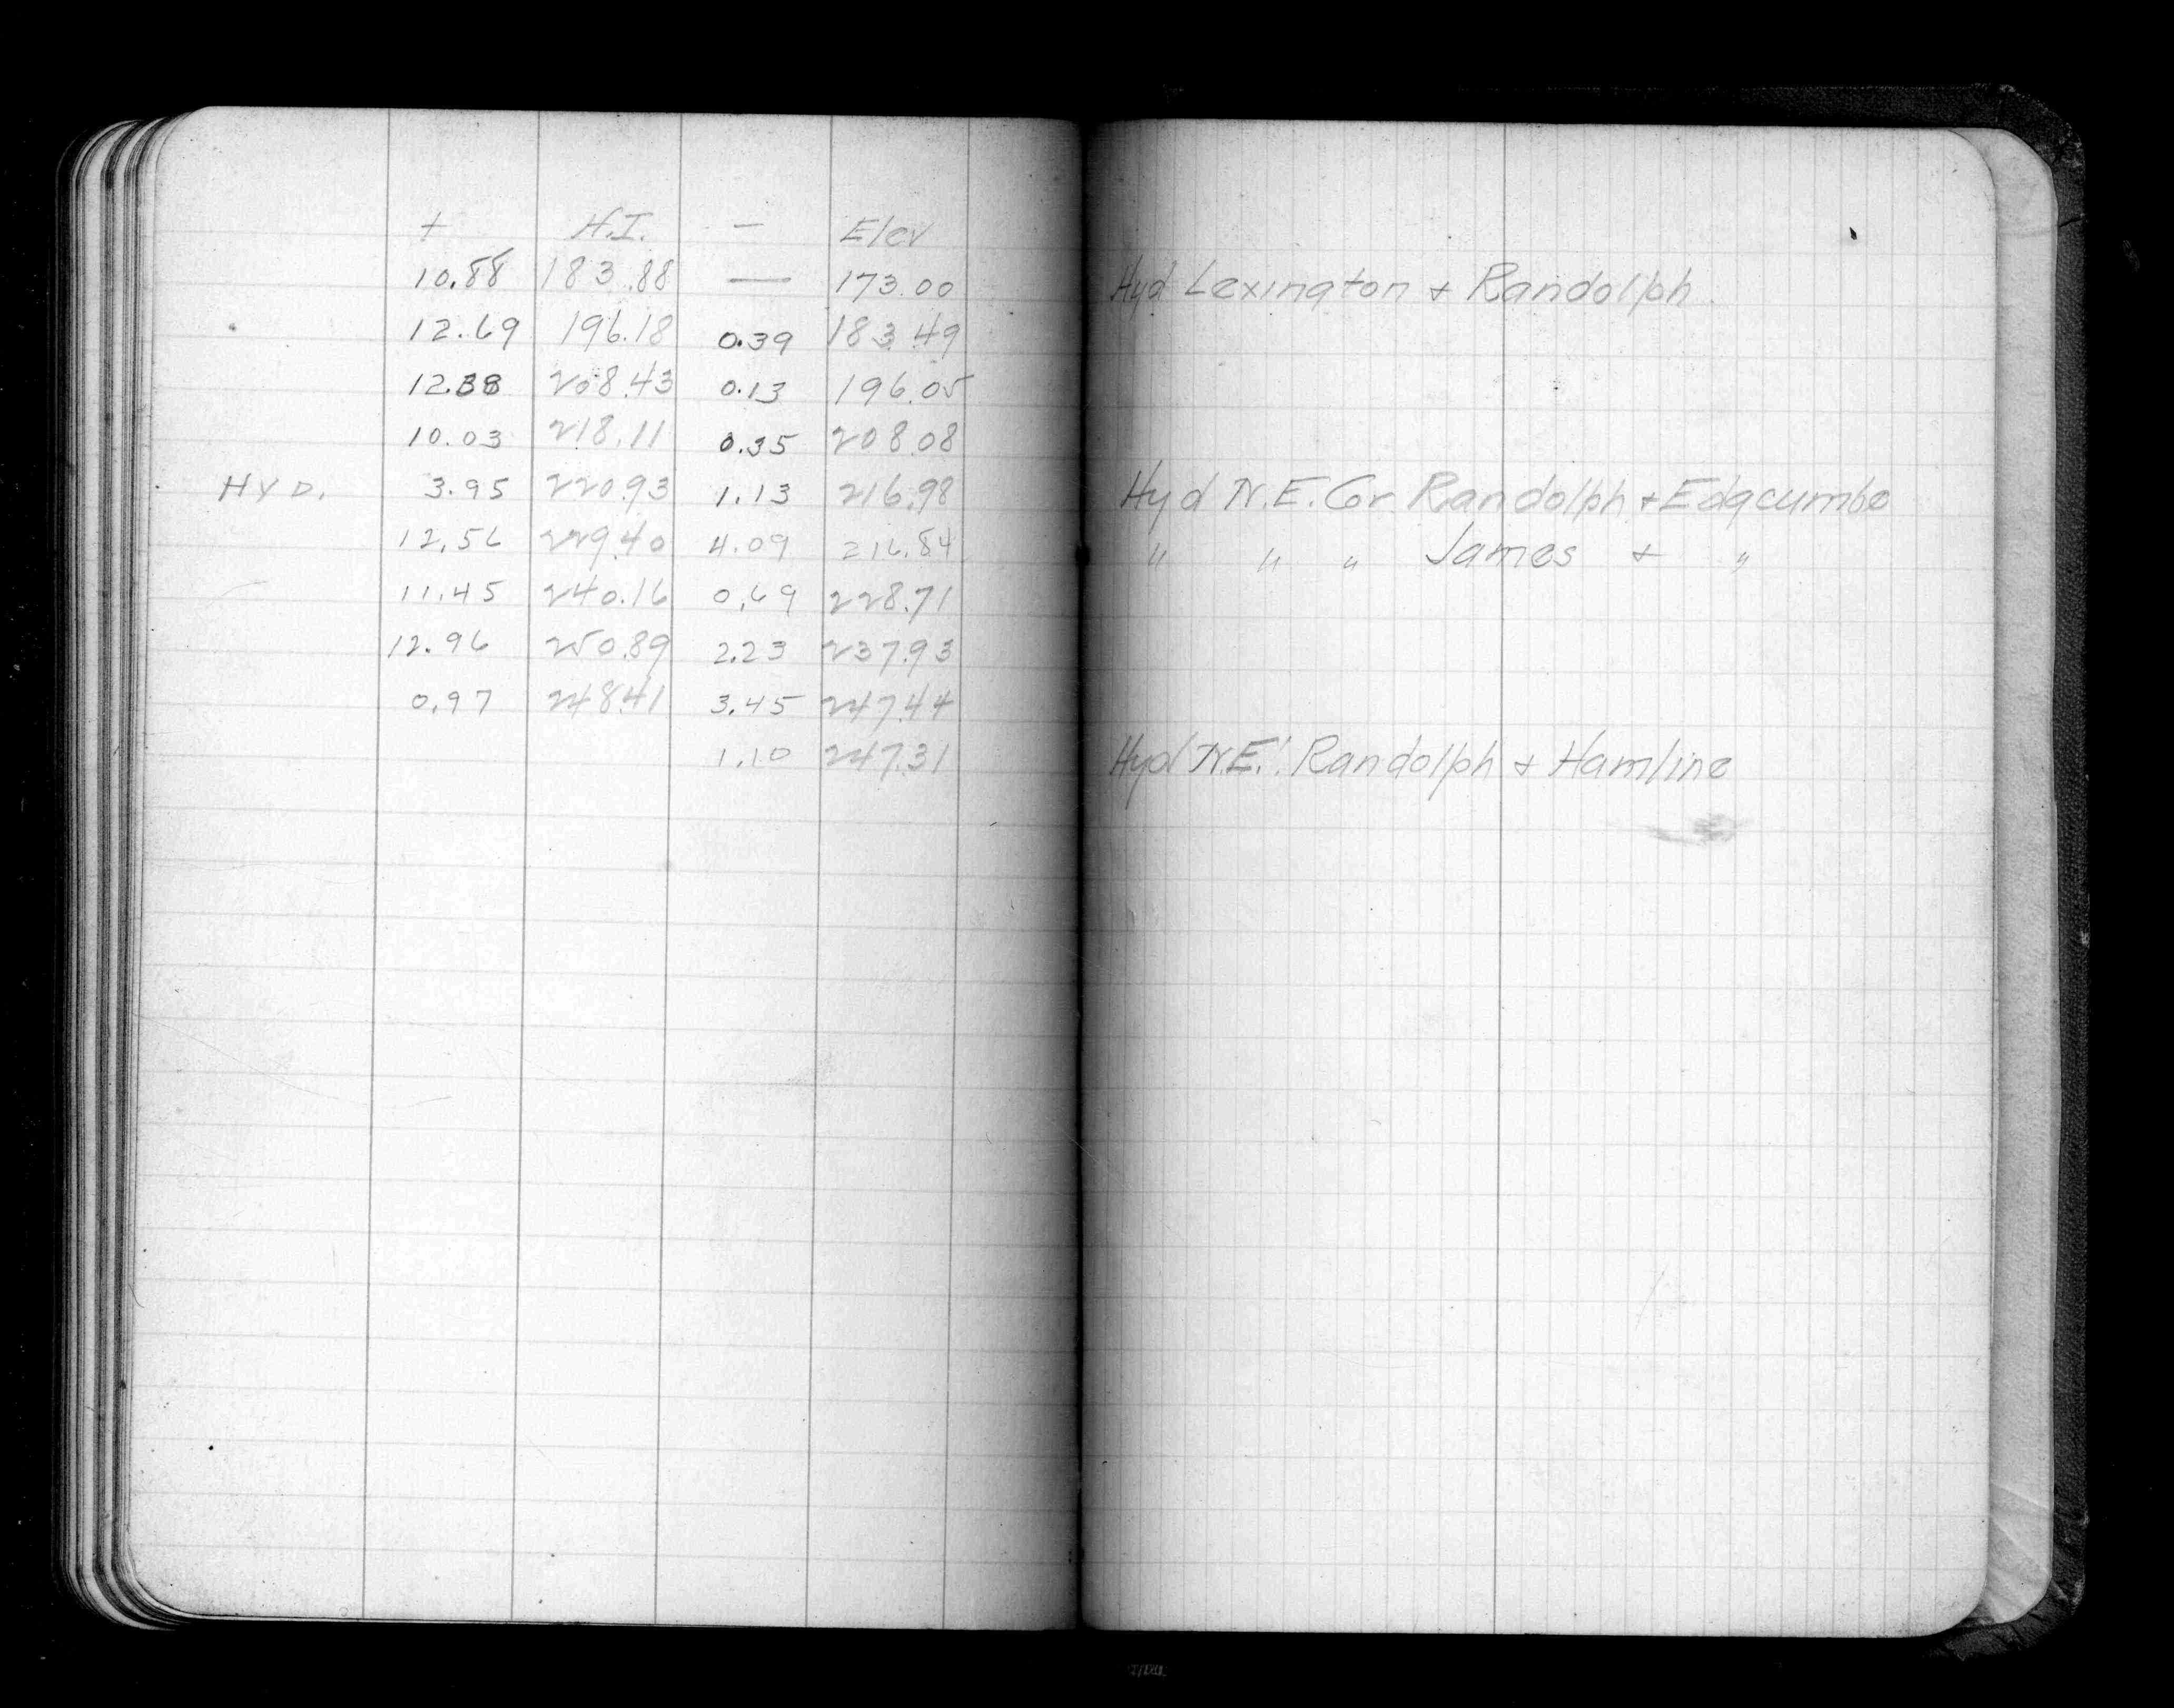 + H.I. — Elev
10.88 183.88 — 173.00 Hyd Lexington & Randolph
12.69 196.18 0.39 183.49
12.38 208.43 0.13 196.05
10.03 218.11 0.35 208.08
HYD. 3.95 220.93 1.13 216.98 Hyd N.E. Cor Randolph & Edgcumbe
12.56 229.40 4.09 216.84 " " " James & "
11.45 240.16 0.69 228.71
12.96 250.89 2.23 237.93
0.97 248.41 3.45 247.44
1.10 247.31 Hyd N.E. Randolph & Hamline